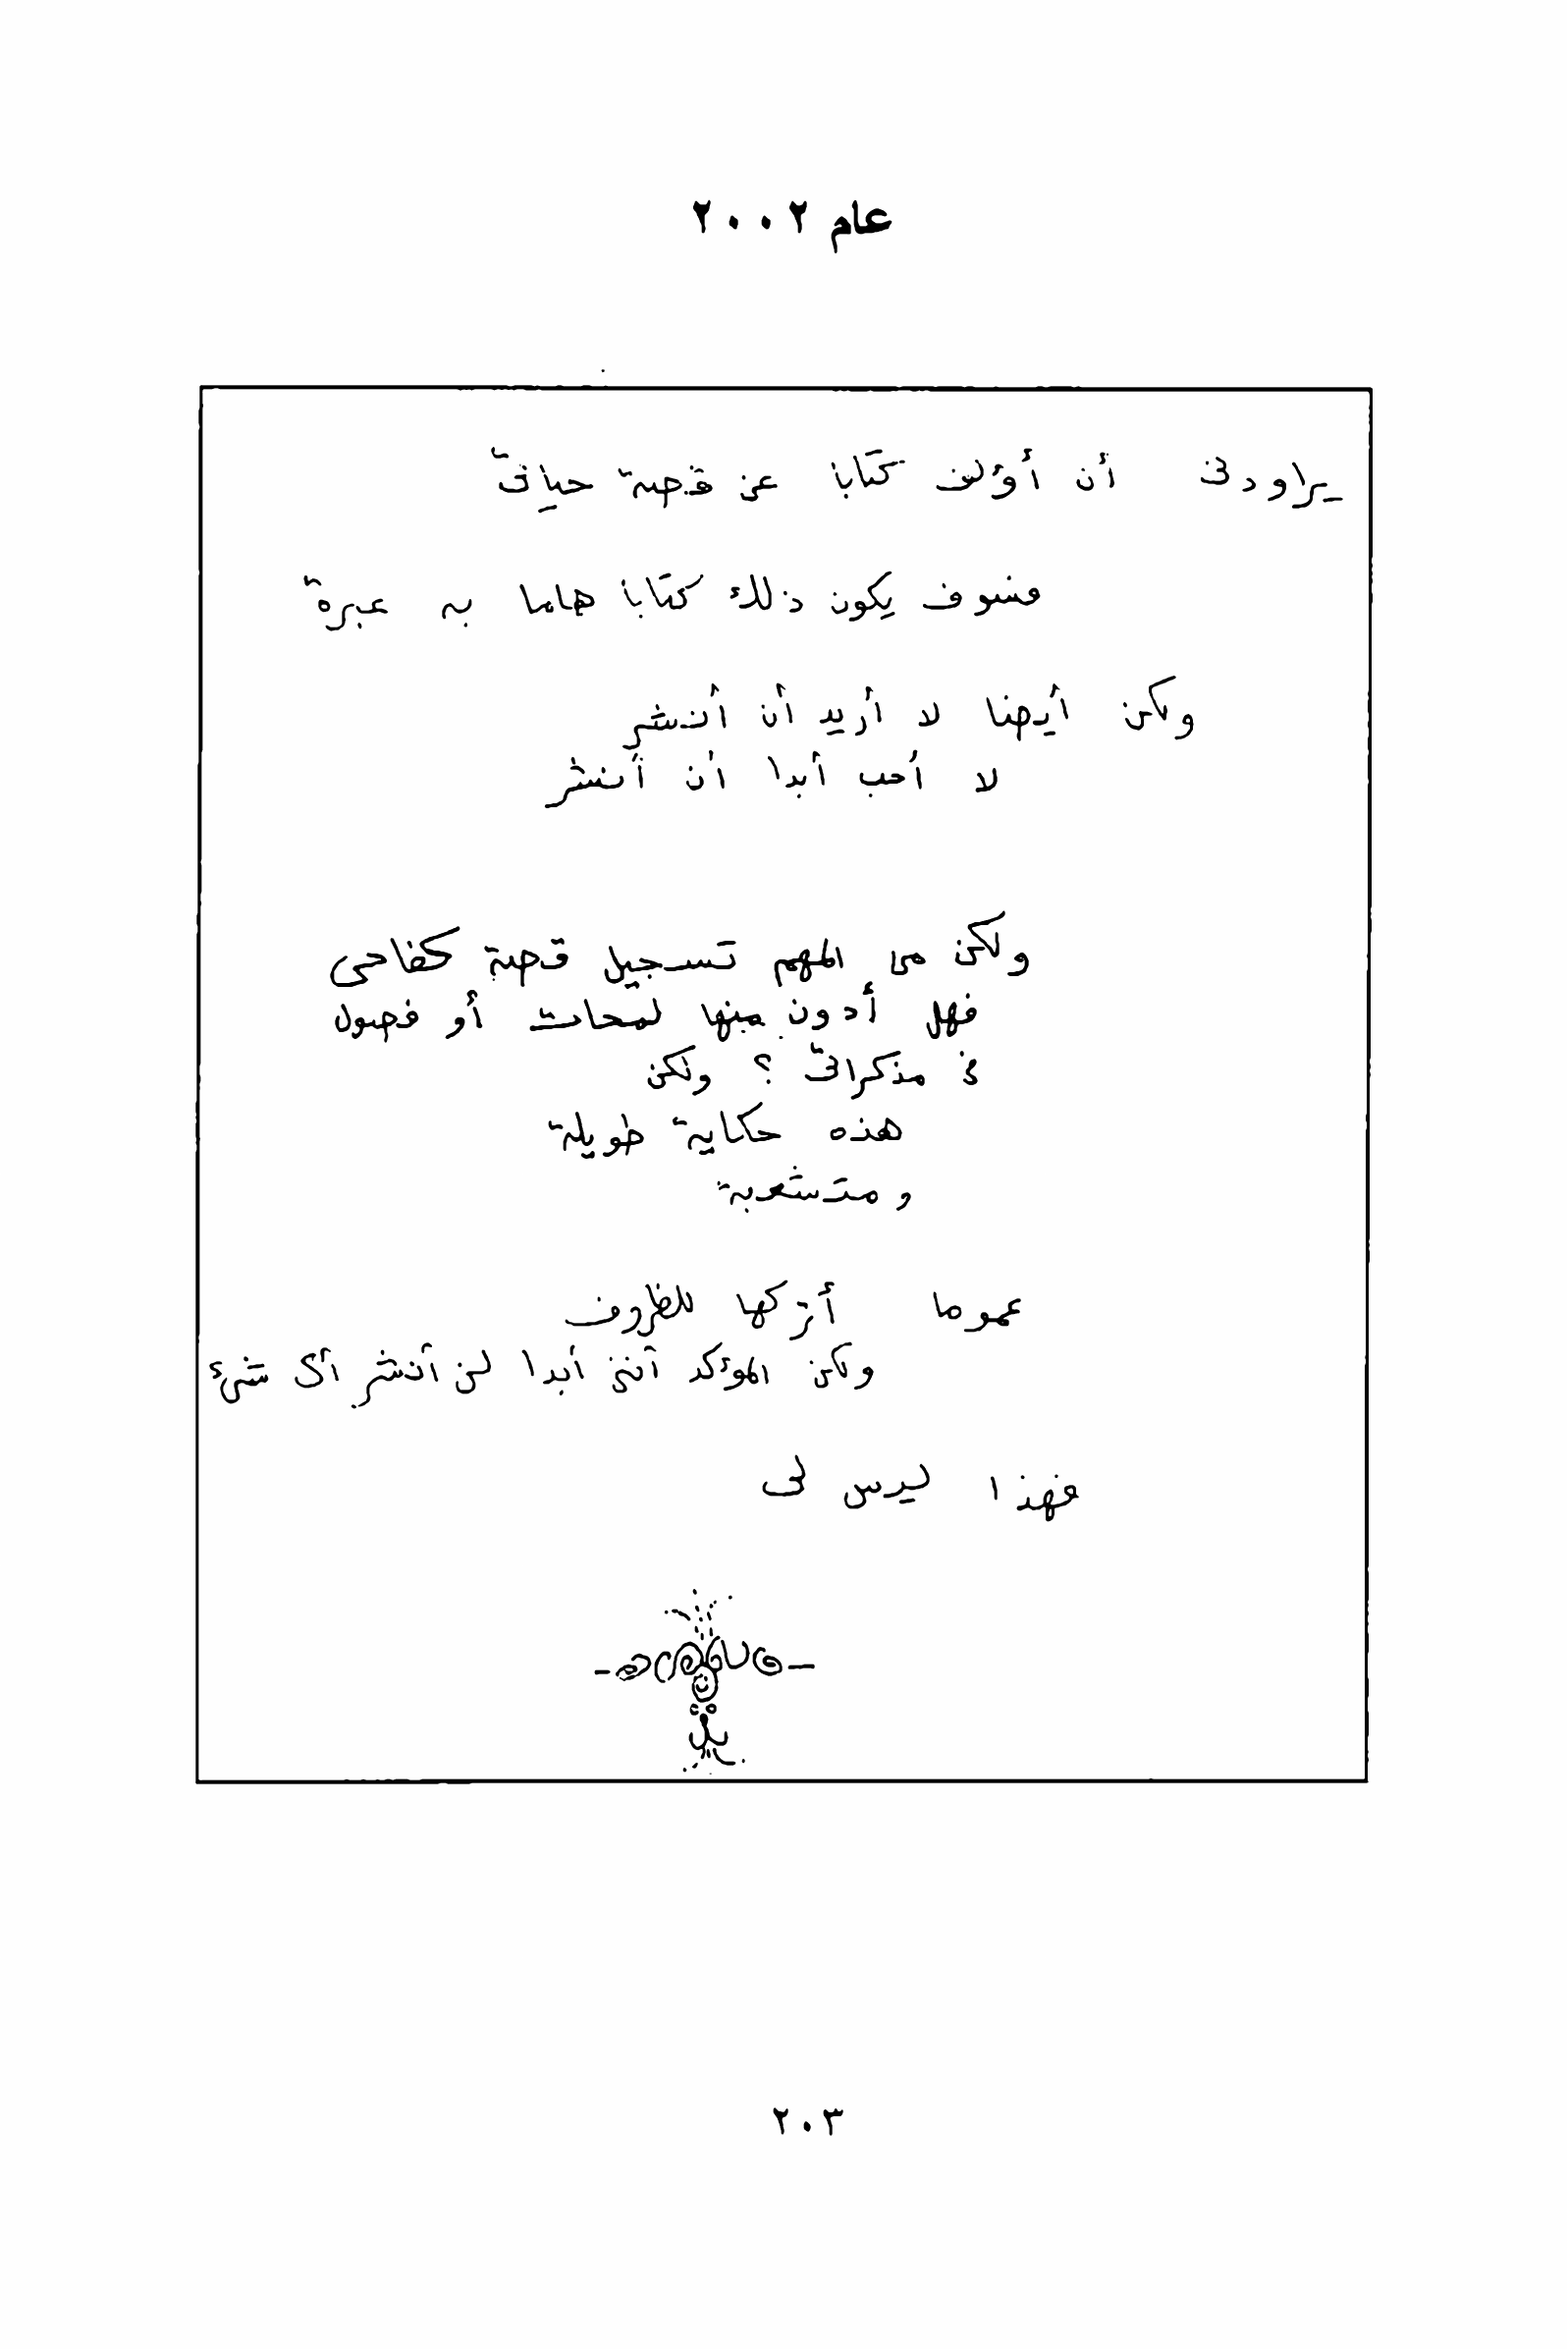 عام ٢٠٠٢
يراودنى أن أؤلف كتابا عن قصة حياتى
فسوف يكون ذلك كتابا هاما به عبرة
ولكن أيضا لا أريد أن أنشر
لا أحب أبدا أن أنشر
ولكن من المهم تسجيل قصة كفاحى
فهل أدون منها لمحات أو فصول
فى مذكراتى ؟ ولكن
هذه حكاية طويلة
ومتشعبة
عموما أتركها للظروف
ولكن المؤكد أننى أبدا لن أنشر أى شىء
فهذا ليس لى
٢٠٣